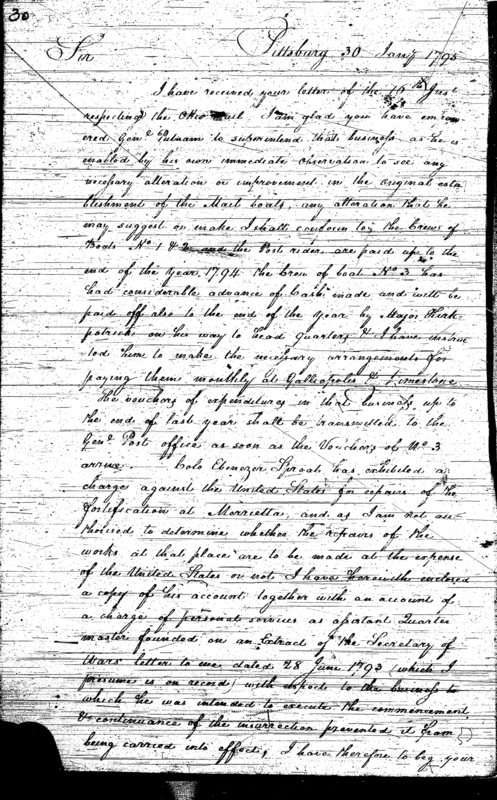 30
Sir Pittsburg 30 Jany 1795
I have received your letter of the 16th Inst
respecting the Ohio mail. I am glad you have empow
ered Genl Putnam to superintend that business as he is
enabled by his own immediate observation to see any
necessary alteration or improvement in the original esta
blishment of the Mail boats; any alteration that he
may suggest or make I shall conform to; the Crews of
Boats No 1 & 2 and the Post rider are paid up to the
end of the Year 1794 the Crew of boat No 3 has
had considerable advance of Cash made and will be
paid off also to the end of the Year by Major Kirk-
patrick on his way to head Quarters & I have instruc
ted him to make the necessary arrangements for
paying them monthly at Galliopolis & Limestone
The vouchers of expenditures in that business up to
the end of last year shall be transmitted to the
Genl Post office as soon as the Vouchers of No 3
arrive. Colo Ebenezer Sproat has exhibited a
charge against the United States for repairs of the
fortification at Merrietta, and as I am not au-
thorised to determine whether the repairs of the
works at that place are to be made at the expense
of the United States or not, I have herewith enclosed
a copy of his account together with an account of
a charge of personal services as Quarter
master founded on an Extract of the Secretary of
Wars letter to me dated 28 June 1793 (which I
presume is on record) with respect to the business to
which he was intended to execute the commencement
& continuance of the insurrection prevented it from
being carried into effect, I have therefore to beg your